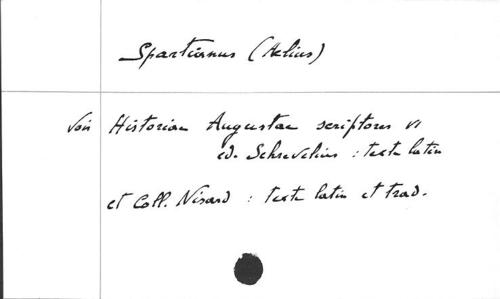 Spartianus (Aelius)
voir Historiae Augustae scriptores VI
ed. Schrevelius : texte latin
et Coll. Nisard : texte latin et trad.